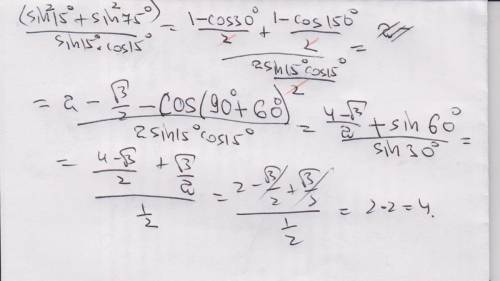 (sin²15°+sin²75°)/(sin15°·cos15°) = ((1-cos30°)/2 + (1-cos150°)/2)/((2sin15°cos15°)/2) =
= (2 - √3/2 - cos(90°+60°))/(2sin15°cos15°) = ((4-√3)/2 + sin60°)/(sin30°) =
= ((4-√3)/2 + √3/2)/(1/2) = (2 - √3/2 + √3/2)/(1/2) = 2·2=4.